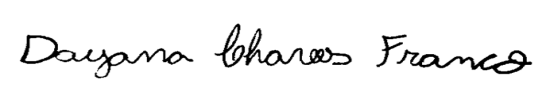 Dayana Chaves Franco